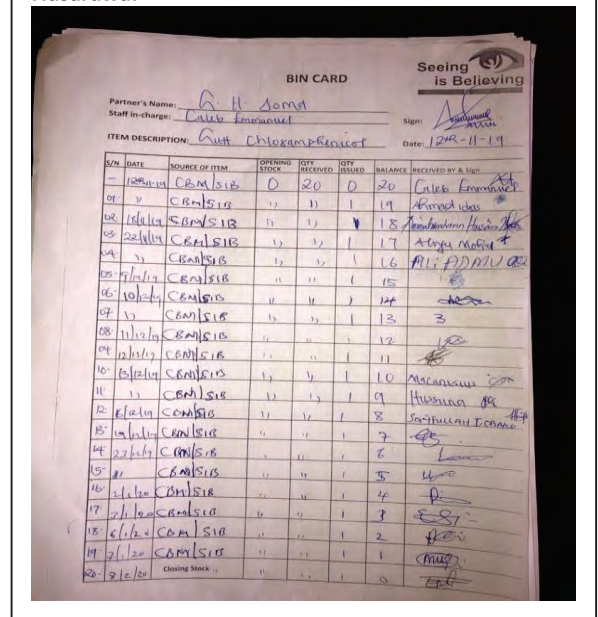 BIN CARD
Seeing is Believing
Partner's Name: G. H. Soma
Staff in-charge: Caleb Emmanuel Sign:
ITEM DESCRIPTION: Gutt Chloxamphenicol Date: 12th-11-19
S/N DATE SOURCE OF ITEM OPENING STOCK QTY RECEIVED QTY ISSUED BALANCE RECEIVED BY & Sign
- 12th-11-19 CBM/SIB 0 20 0 20 Caleb Emmanuel
01 " CBM/SIB " " 1 19 Ahmad idas
02 CBM/SIB " " 1 18
03 CBM/SIB " " 1 17
04 " CBM/SIB " " 1 16 ALi ADAMU
05 9/12/19 CBM/SIB " " 1 15
06 10/12/19 CBM/SIB " " 1 14
07 " CBM/SIB " " 1 13 3
08 11/12/19 CBM/SIB " " 1 12
09 12/12/19 CBM/SIB " " 1 11
10 13/12/19 CBM/SIB " " 1 10
11 " CBM/SIB " " 1 9 Hussuna
12 CBM/SIB " " 1 8
13 CBM/SIB " " 1 7
14 23/12/19 CBM/SIB " " 1 6
15 " CBM/SIB " " 1 5
16 2/1/20 CBM/SIB " " 1 4
17 CBM/SIB " " 1 3
18 6/1/20 CBM/SIB " " 1 2
19 7/1/20 CBM/SIB " " 1 1
20 Closing Stock " " 1 0